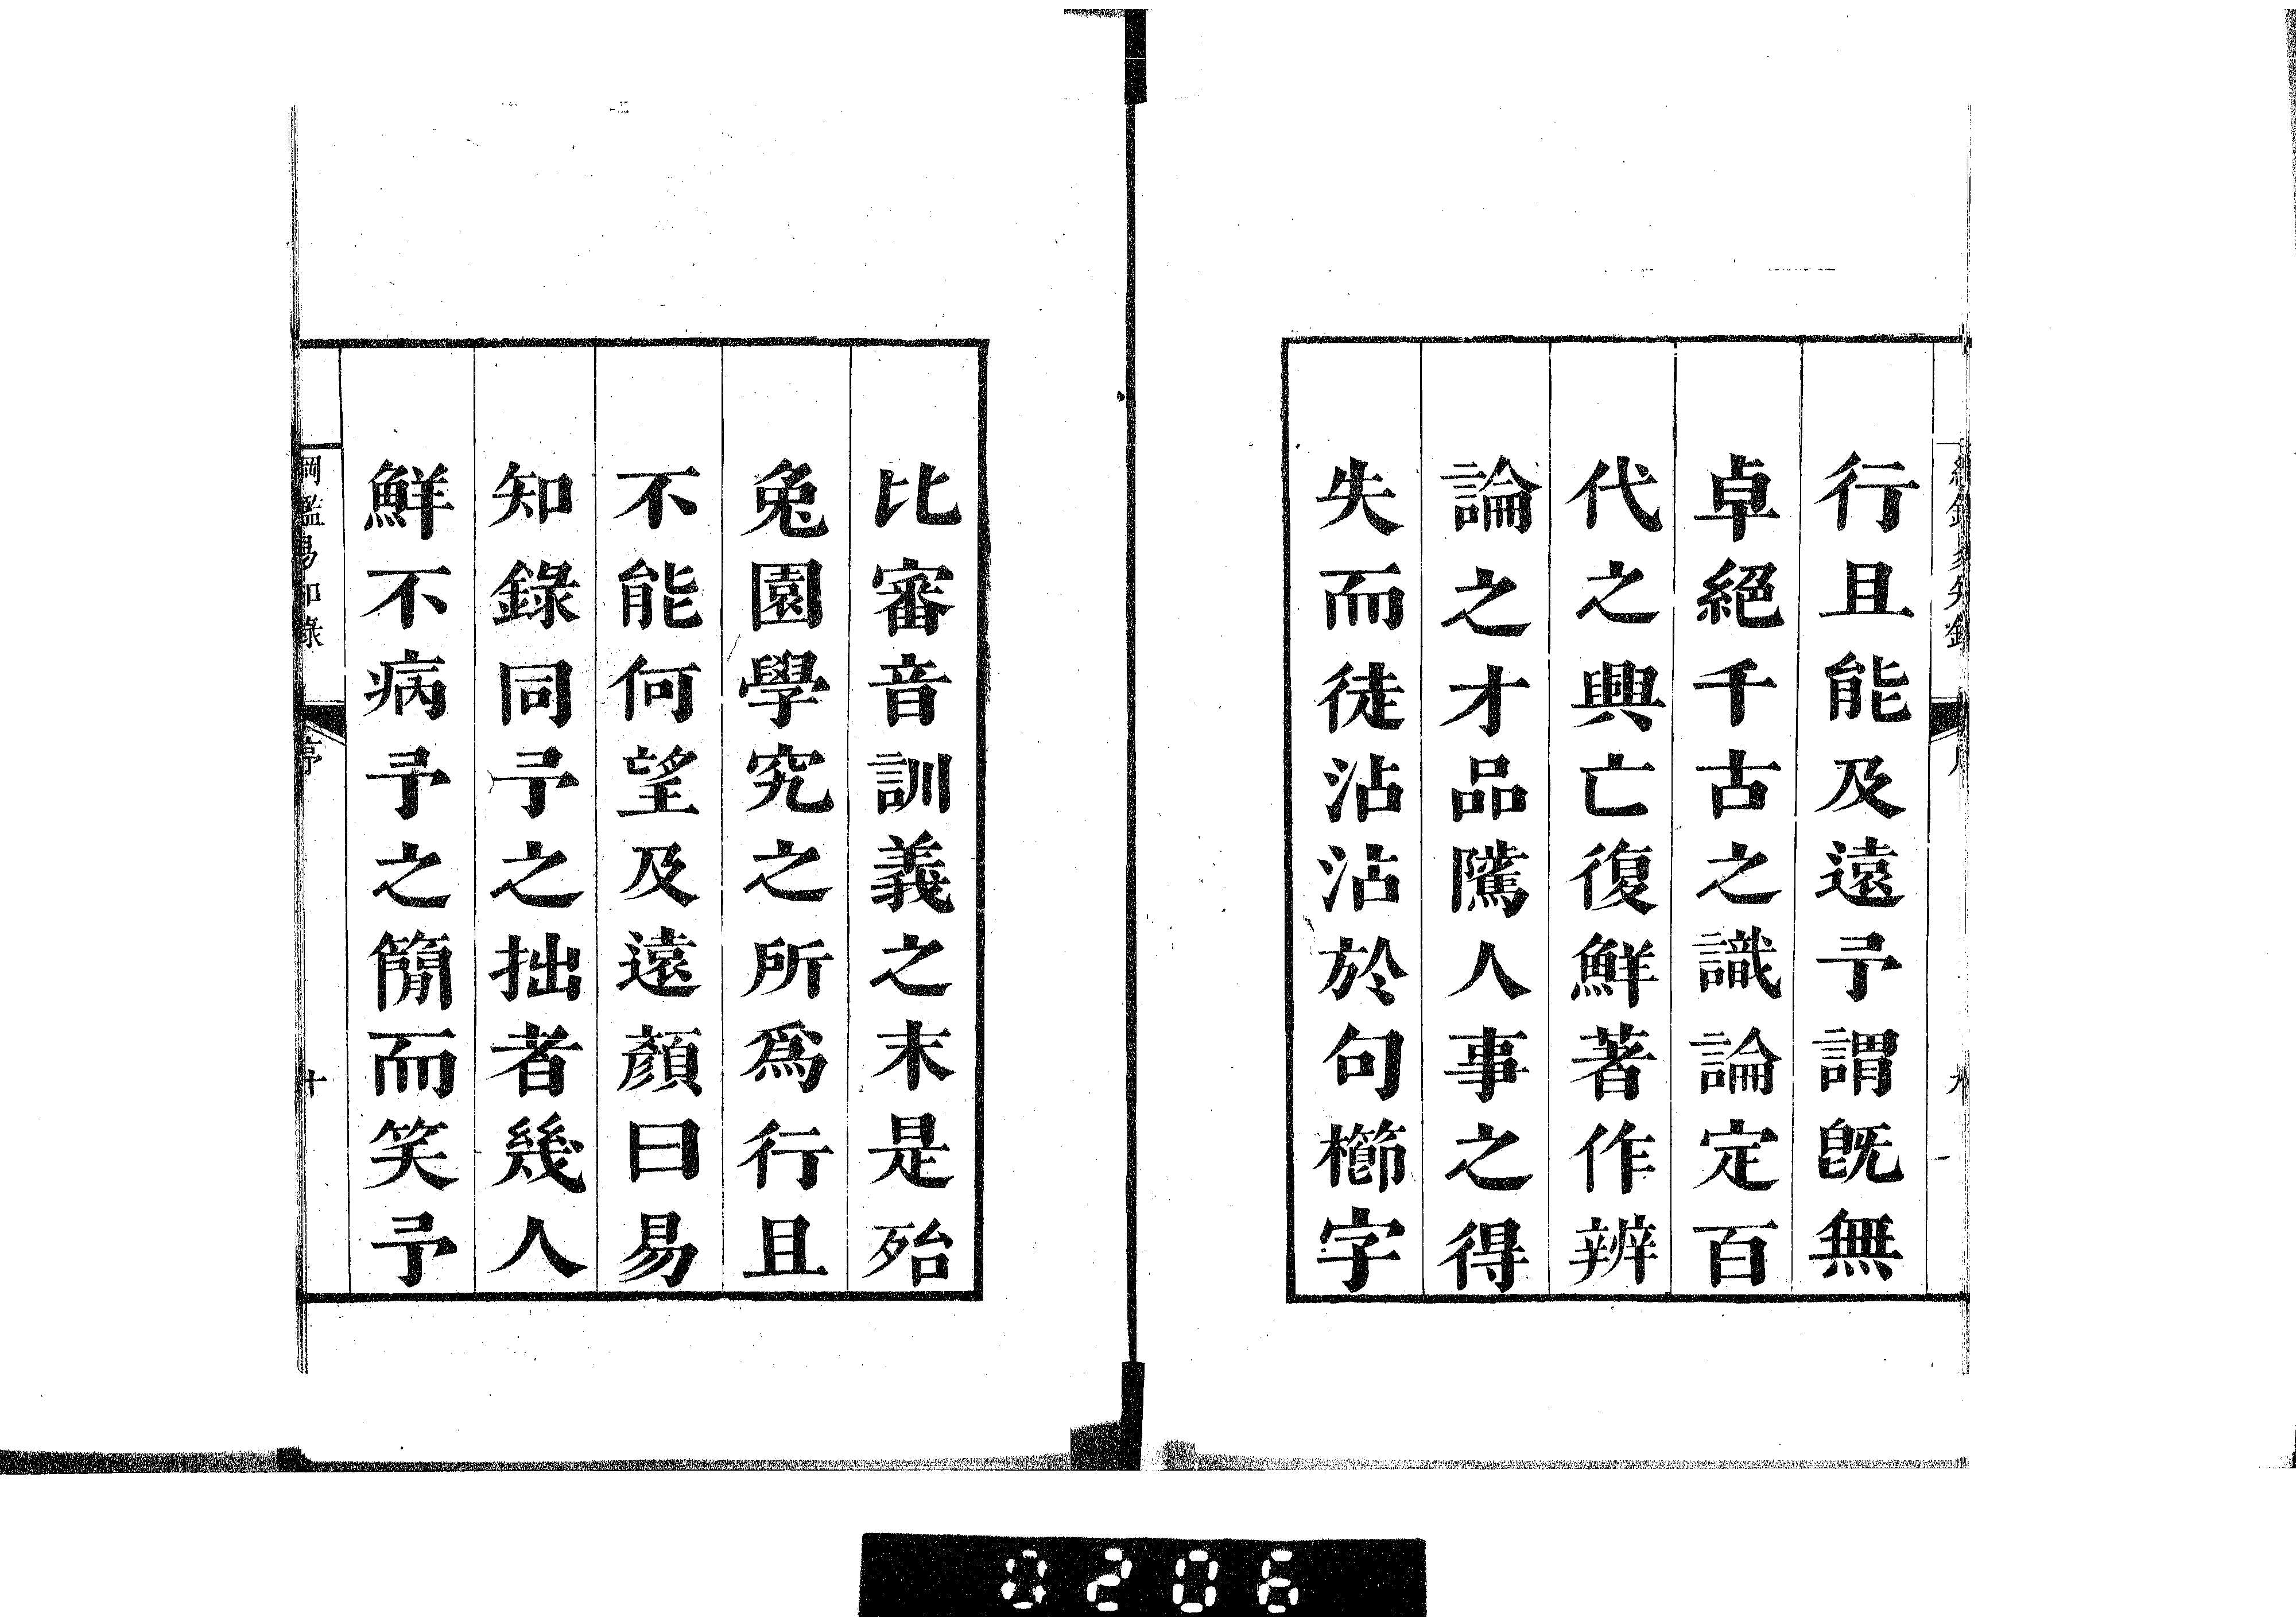 行且能及遠予謂旣無
卓絕千古之識論定百
代之興亡復鮮著作辨
論之才品隲人事之得
失而徒沾沾於句櫛字
比審音訓義之末是殆
兔園學究之所爲行且
不能何望及遠顏曰易
知錄同予之拙者幾人
鮮不病予之簡而笑予
綱鑑易知錄
序
十
0206